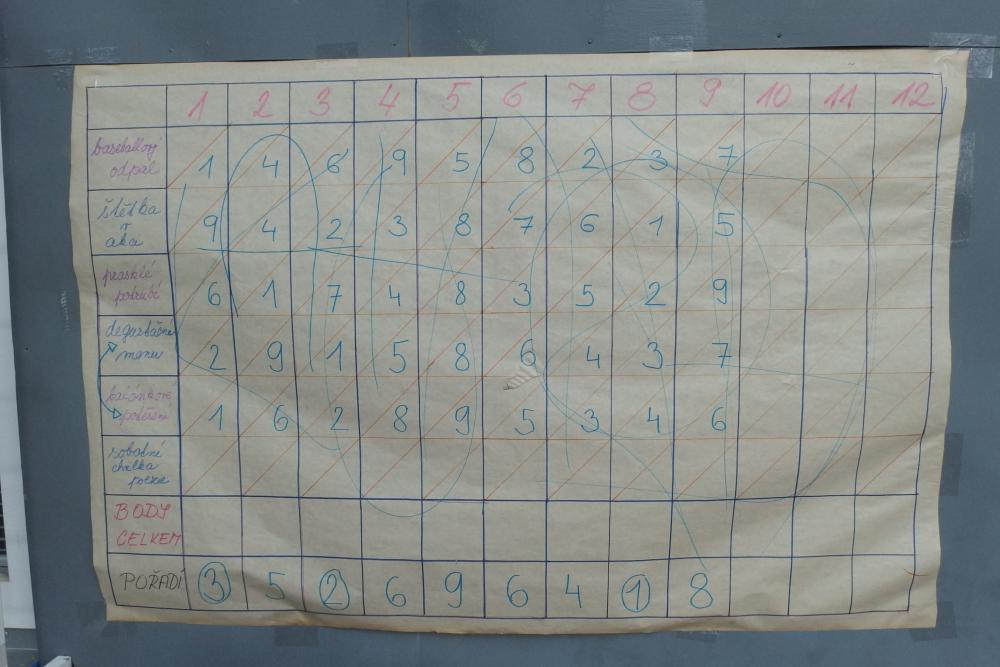 1 2 3 4 5 6 7 8 9 10 11 12
baseballový 1 4 6 9 5 8 2 3 7
odpal
štětka 9 4 2 3 8 7 6 1 5
v
aka
prasklé 6 1 7 4 8 3 5 2 9
potrubí
degustační 2 9 1 5 8 6 4 3 7
menu
balónkové 1 6 2 8 9 5 3 4 6
potěšení
chvilka
poezie
BODY
CELKEM
POŘADÍ 3 5 2 6 9 6 4 1 8